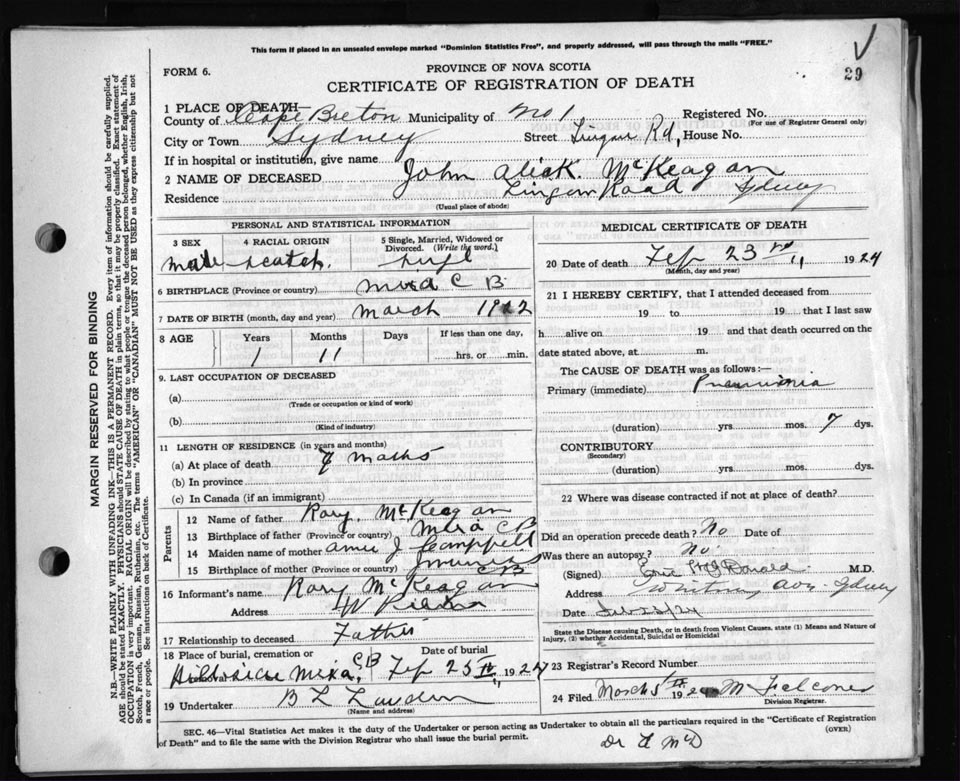 This form if placed in an unsealed envelope marked "Dominion Statistics Free", and properly addressed, will pass through the mails "FREE."
29
FORM 6.
PROVINCE OF NOVA SCOTIA
CERTIFICATE OF REGISTRATION OF DEATH
1 PLACE OF DEATH—
County of Cape Breton Municipality of No 1 Registered No.
(For use of Registrar General only)
City or Town Sydney Street Lingan Rd, House No.
If in hospital or institution, give name
2 NAME OF DECEASED John Alick. McKeagan
Residence Lingan Road Sydney
(Usual place of abode)
PERSONAL AND STATISTICAL INFORMATION
3 SEX 4 RACIAL ORIGIN 5 Single, Married, Widowed or Divorced. (Write the word.)
Male Scotch. Singl
6 BIRTHPLACE (Province or country) Mira C B.
7 DATE OF BIRTH (month, day and year) March 1922
8 AGE Years Months Days If less than one day,
1 11 hrs. or min.
9. LAST OCCUPATION OF DECEASED
(a)
(Trade or occupation or kind of work)
(b)
(Kind of industry)
11 LENGTH OF RESIDENCE (in years and months)
(a) At place of death
(b) In province
(c) In Canada (if an immigrant)
Parents
12 Name of father Rory. McKeagan
13 Birthplace of father (Province or country) Mira C B
14 Maiden name of mother J Campbell
15 Birthplace of mother (Province or country) C B
16 Informant's name Rory McKeagan
Address
17 Relationship to deceased Father
18 Place of burial, cremation or Date of burial
Mira, C B Feb 25 th, 1924
19 Undertaker B L
(Name and address)
MEDICAL CERTIFICATE OF DEATH
20 Date of death Feb 23 rd 1924
(Month, day and year)
21 I HEREBY CERTIFY, that I attended deceased from
19 to 19 that I last saw
h alive on 19 and that death occurred on the
date stated above, at m.
The CAUSE OF DEATH was as follows:—
Primary (immediate) Pneumonia
(duration) yrs. mos. 7 dys.
CONTRIBUTORY
(Secondary)
(duration) yrs. mos. dys.
22 Where was disease contracted if not at place of death?
Did an operation precede death? No Date of
Was there an autopsy? No.
(Signed) Donald M.D.
Address Whitney Ave. Sydney
Date
State the Disease causing Death, or in death from Violent Causes, state (1) Means and Nature of
Injury, (2) whether Accidental, Suicidal or Homicidal
23 Registrar's Record Number
24 Filed March 5th 19
Division Registrar.
SEC. 46—Vital Statistics Act makes it the duty of the Undertaker or person acting as Undertaker to obtain all the particulars required in the "Certificate of Registration
of Death" and to file the same with the Division Registrar who shall issue the burial permit.
(OVER)
MARGIN RESERVED FOR BINDING
N.B.—WRITE PLAINLY WITH UNFADING INK—THIS IS A PERMANENT RECORD. Every item of information should be carefully supplied.
AGE should be stated EXACTLY. PHYSICIANS should STATE CAUSE OF DEATH in plain terms, so that it may be properly classified. Exact statement of
OCCUPATION is very important. RACIAL ORIGIN will be described by stating to what people or tongue the deceased person belonged, whether English, Irish,
Scotch, French, German, Russian, Ruthenian, etc. The terms "AMERICAN" OR "CANADIAN" MUST NOT BE USED as they express citizenship but not
a race or people. See instructions on back of Certificate.